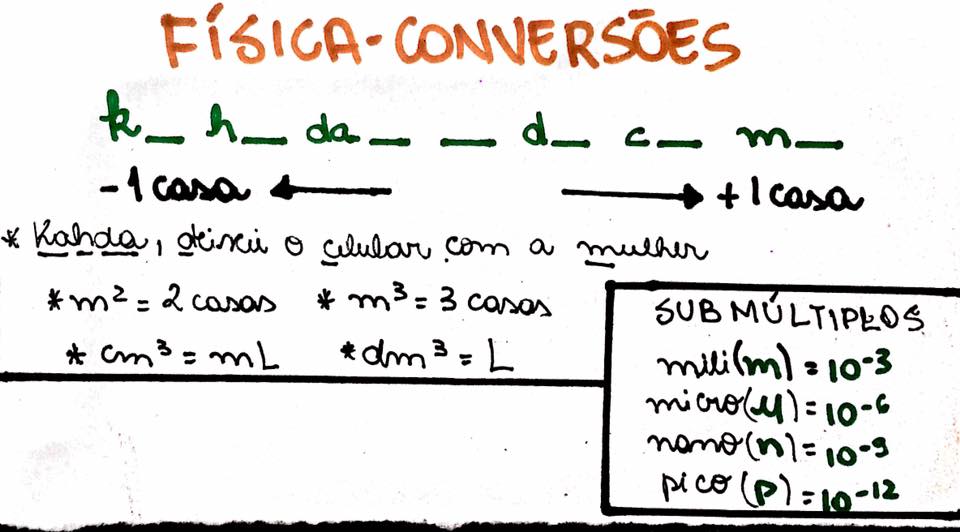 FÍSICA-CONVERSÕES
k_ h_ da_ _ d_ c_ m_
-1 casa ← → +1 casa
* Kahda, deixei o celular com a mulher
* m² = 2 casas * m³ = 3 casas
* cm³ = mL * dm³ = L
SUBMÚLTIPLOS
mili(m) = 10-3
micro(μ) = 10-6
nano(n) = 10-9
pico(p) = 10-12